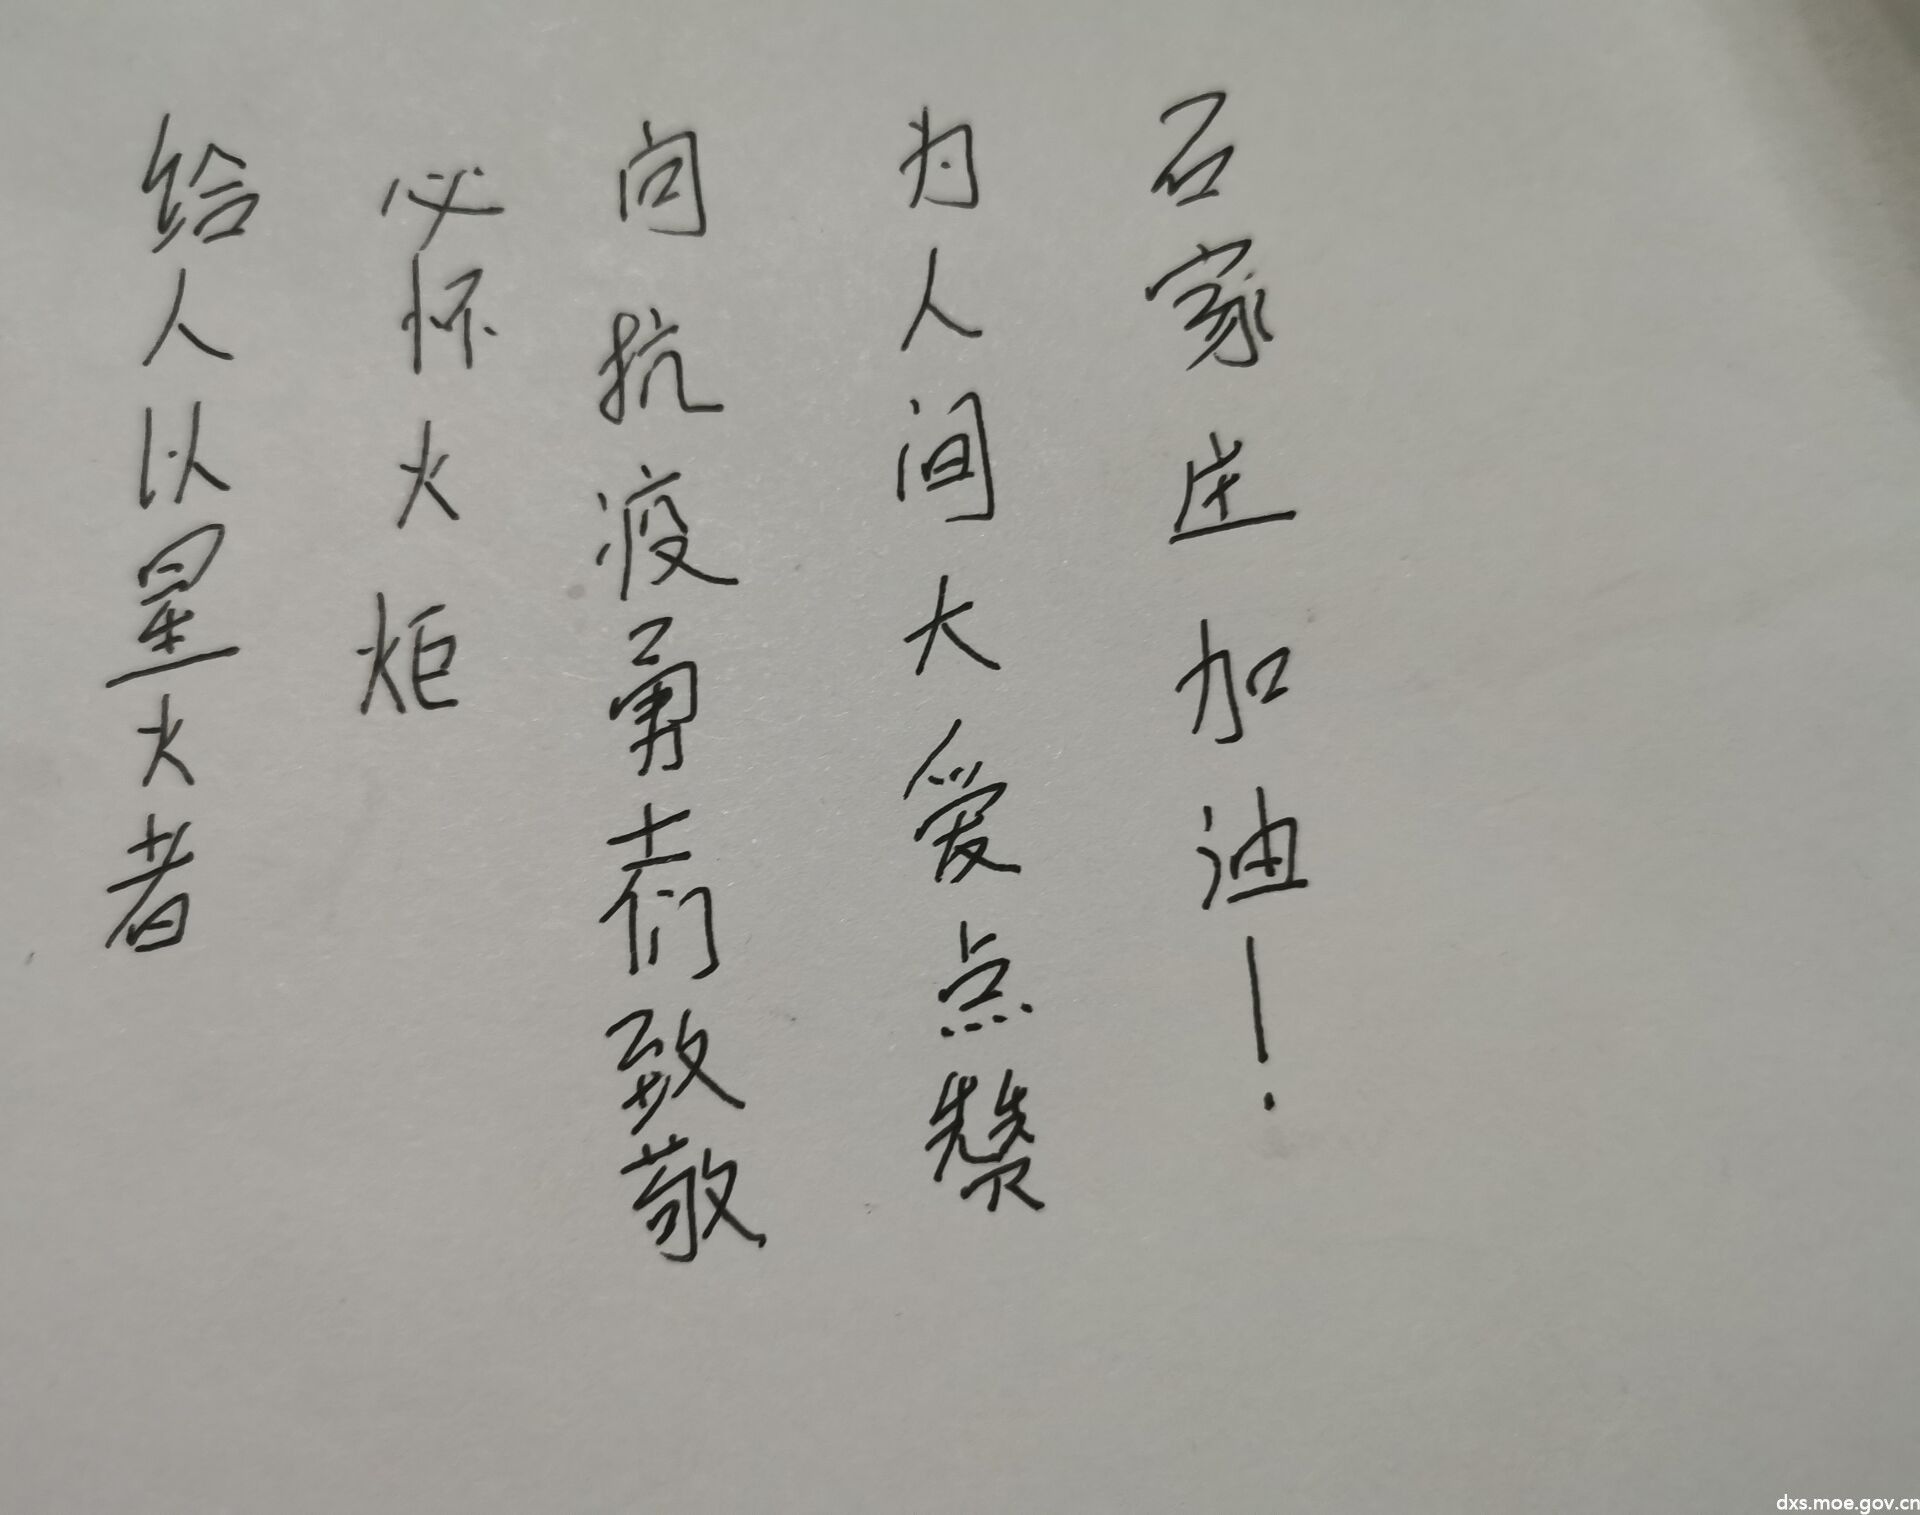 给人以星火者
必怀火炬
向抗疫勇士们致敬
为人间大爱点赞
石家庄加油！
dxs.moe.gov.cn